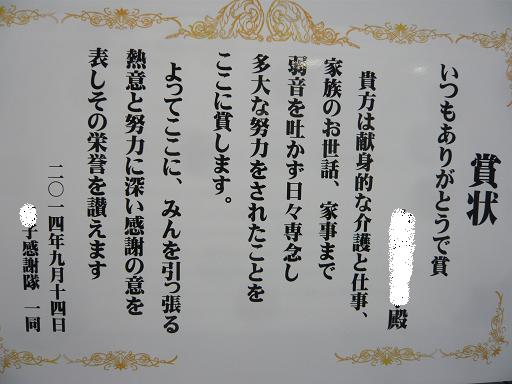 賞状
いつもありがとうで賞
殿
貴方は献身的な介護と仕事、
家族のお世話、家事まで
弱音を吐かず日々専念し
多大な努力をされたことを
ここに賞します。
よってここに、みんを引っ張る
熱意と努力に深い感謝の意を
表しその栄誉を讃えます
二〇一四年九月十四日
子感謝隊 一同